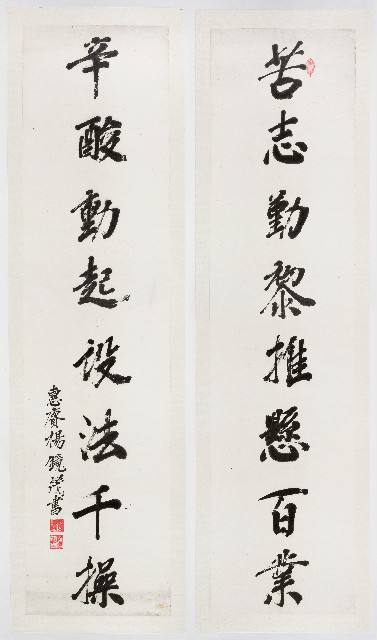 苦志勤黎推懸百業
辛酸動起設法千操
惠賡楊鏡芤書